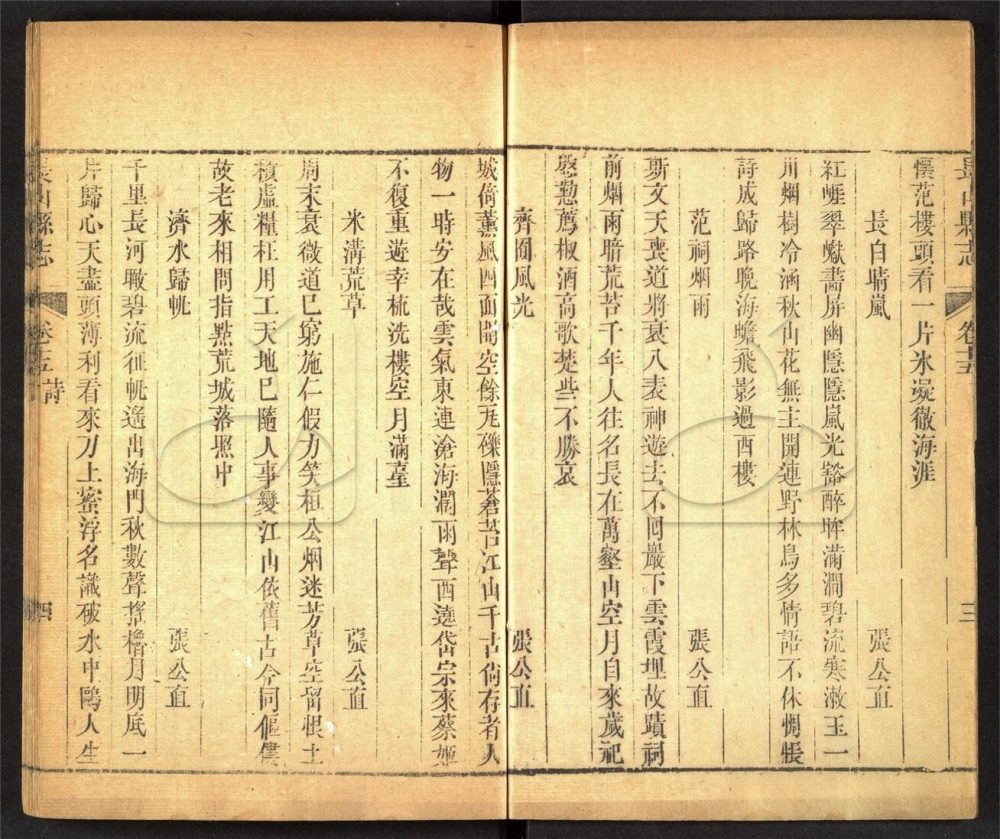 長山縣志
卷十五
三
懷范樓頭看一片氷凝徹海涯
長白晴嵐 張公直
紅崕翠巘畵屏幽隱隱嵐光豁醉眸滿澗碧流寒漱玉一
川烟樹冷涵秋山花無主開連野林鳥多情語不休惆悵
詩成歸路晚海蟾飛影過西樓
范祠烟雨 張公直
斯文天喪道將衰八表神遊去不囘巖下雲霞埋故蹟祠
前烟雨暗荒苔千年人往名長在萬壑山空月自來歲祀
慇懃薦椒酒高歌楚些不勝哀
齊囿風光 張公直
城倚薰風四面開空餘瓦礫隱蒼苔江山千古倘存者人
物一時安在哉雲氣東連滄海濶雨聲西遶岱宗來蔡姬
不復重遊幸梳洗樓空月滿臺
米溝荒草 張公直
周末衰微道已窮施仁假力笑桓公烟迷芳草空留恨土
積虛糧枉用工天地已隨人事變江山依舊古今同傴僂
故老來相問指點荒城落照中
濟水歸帆 張公直
千里長河瞰碧流征帆遙出海門秋數聲搖櫓月明底一
片歸心天盡頭薄利看來刀上蜜浮名識破水中鷗人生
長山縣志
卷十五 詩
四